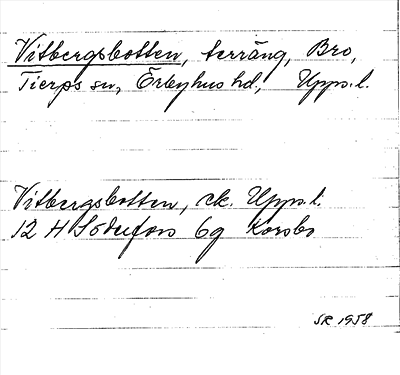 Vitbergsbotten, terräng, Bro,
Tierps sn, Örbyhus hd, Upps. l.
Vitbergsbotten, ek. Upps. l.
12 H Söderfors 6g Korsbo
SR 1958